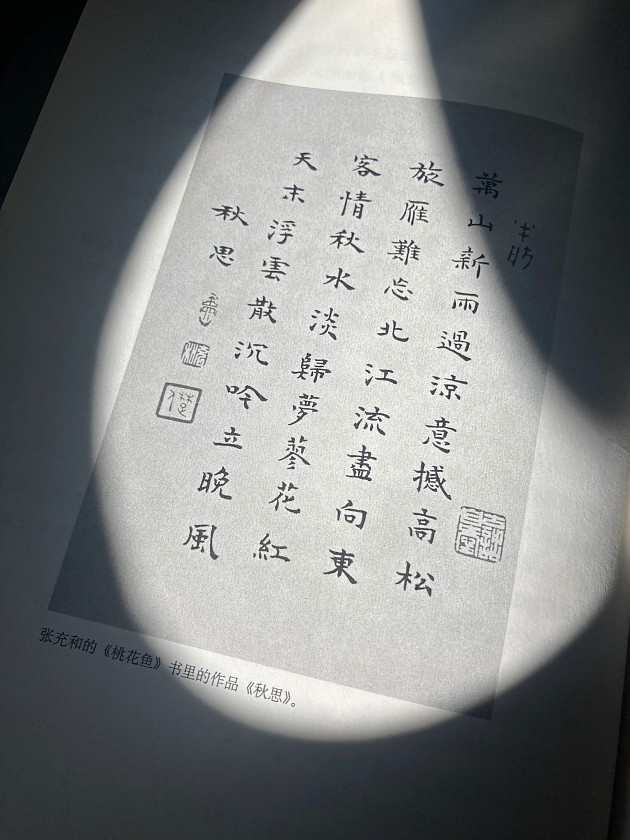 萬山新雨過涼意撼高松
旅雁難忘北江流盡向東
客情秋水淡歸夢蓼花紅
天末浮雲散沉吟立晚風
秋思
张充和的《桃花鱼》书里的作品《秋思》。